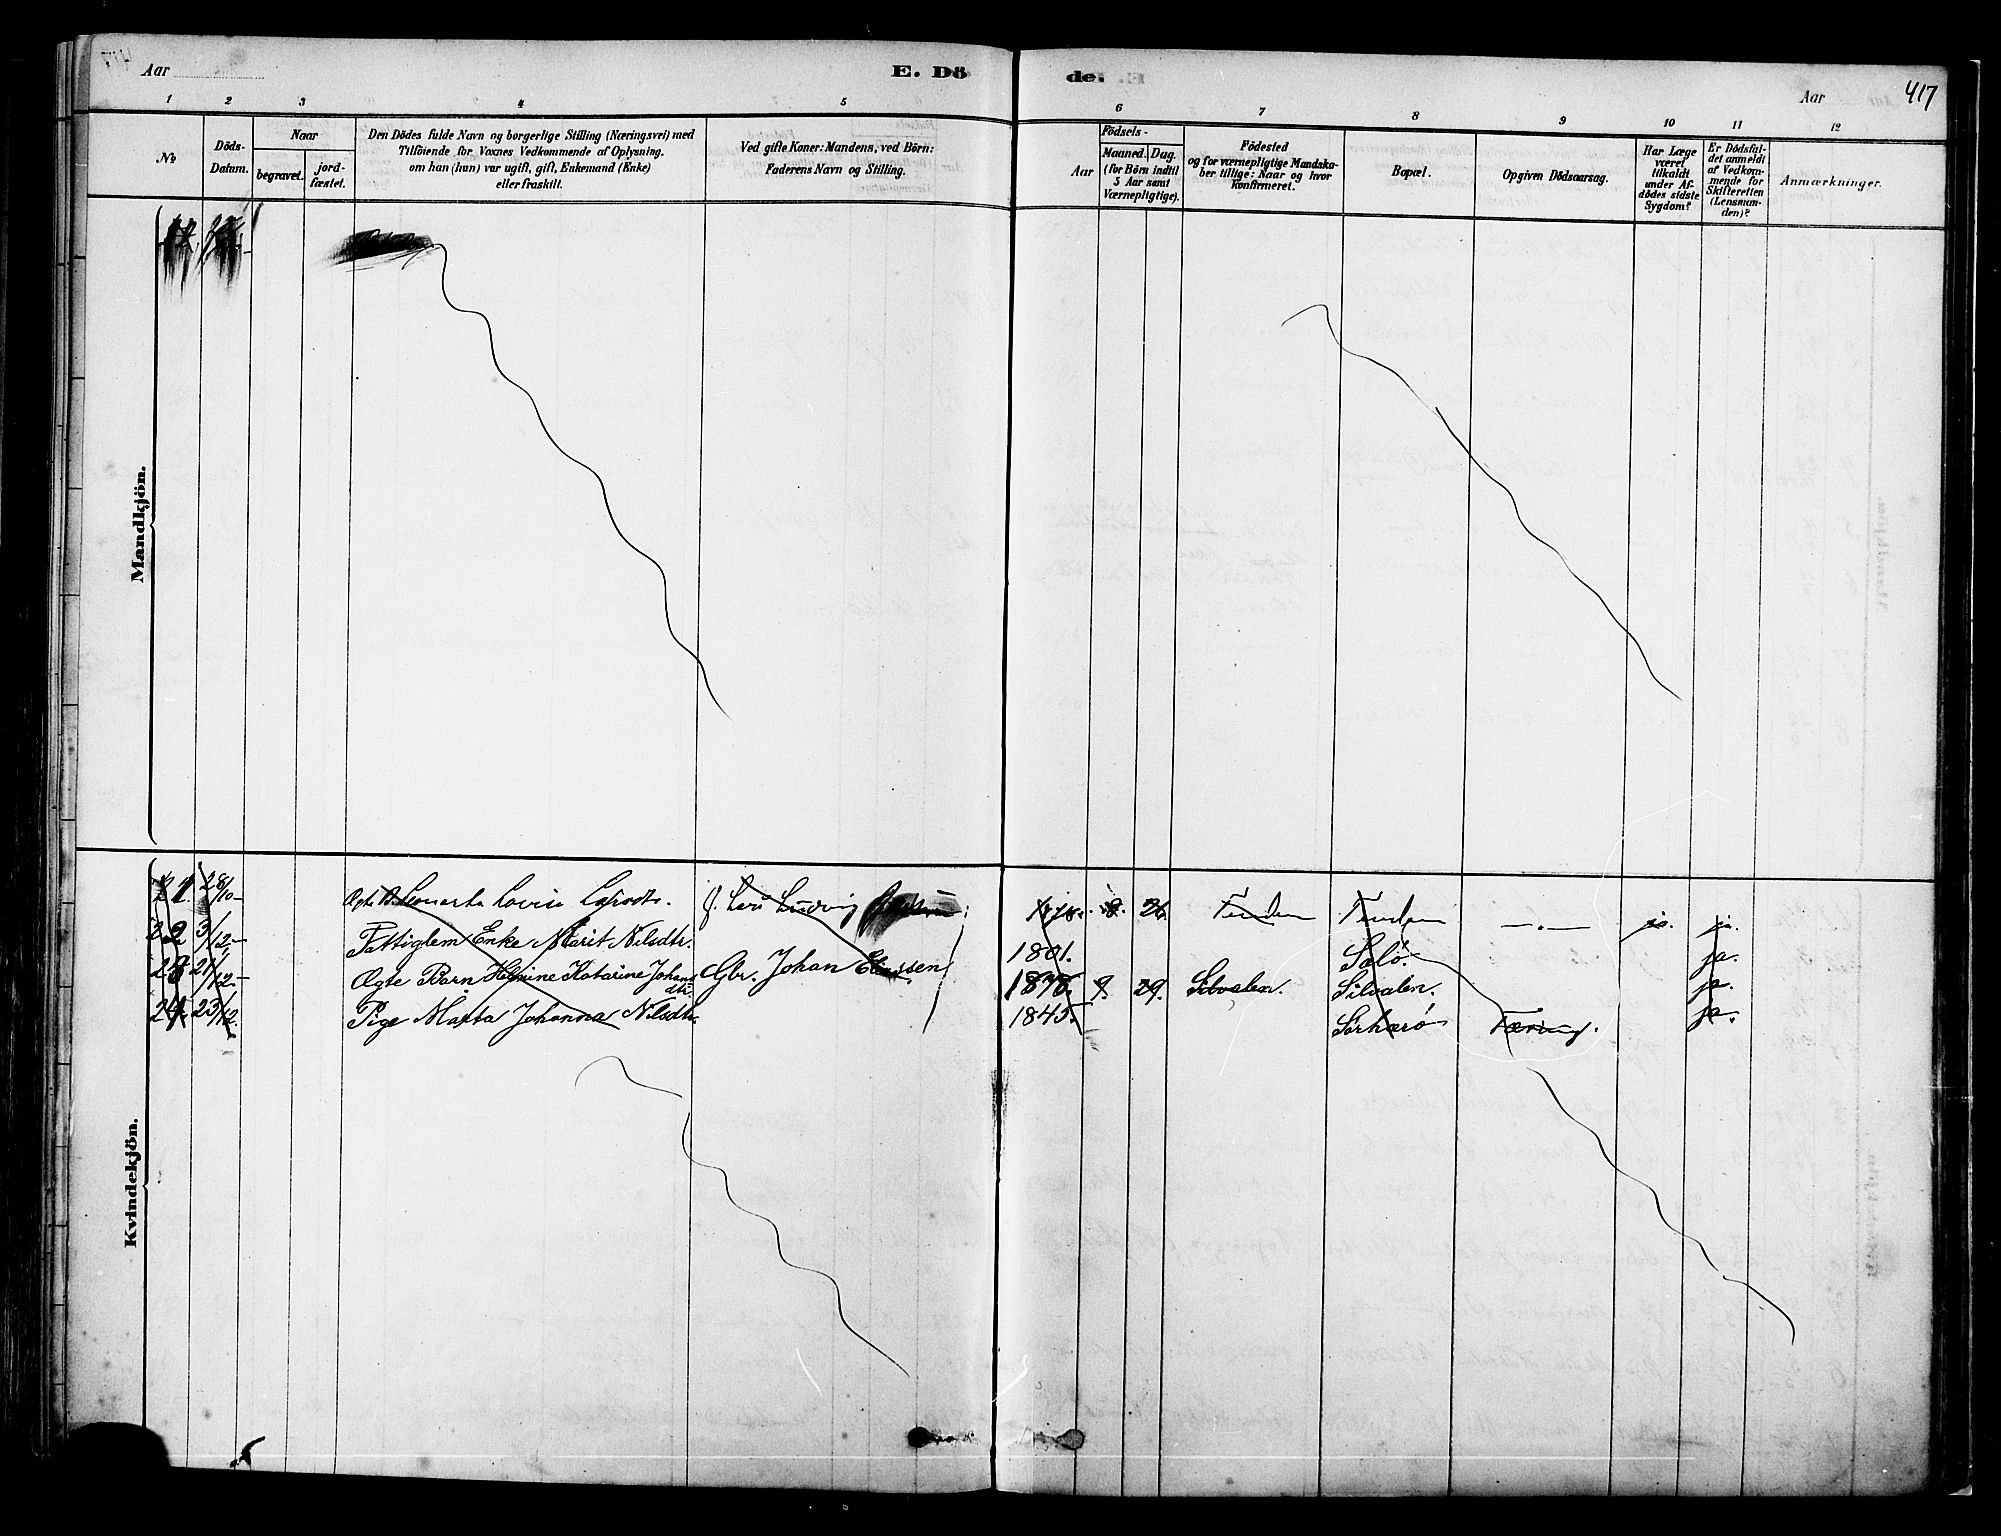 Aar
E. Döde.
Aar
417
1 2 3 4 5 6 7 8 9 10 11 12
No
Döds-Datum.
Naar
begravet.
jord-fæstet.
Den Dödes fulde Navn og borgerlige Stilling (Næringsvei) med
Tilföiende for Voxnes Vedkommende af Oplysning.
om han (hun) var ugift, gift, Enkemand (Enke)
eller fraskilt.
Ved gifte Koner: Mandens, ved Börn:
Faderens Navn og Stilling.
Födsels-
Aar
Maaned. Dag.
(for Börn indtil
5 Aar samt
Værnepligtige).
Födested
og for værnepligtige Mandska-
ber tillige: Naar og hvor
Konfirmeret.
Bopæl.
Opgiven Dödsaarsag.
Har Læge
været
tilkaldt
under Af-
dödes sidste
Sygdom?
Er Dödsfal-
det anmeldt
af Vedkom-
mende for
Skifteretten
(Lensman-
den)?
Anmærkninger.
Mandkjön.
Kvindekjön.
21. 28/10 Lovise Ludvig 8. 26. ja. ja.
22 3/12 Enke Marit Nilsdtr. 1801. Salö. ja.
23 21/12 Ægte Barn Helmine Katarine Johans
dtr. Gbr. Johan Eliassen 1878. 9. 29. Silvalen. Silvalen. ja.
24 23/12. Pige Marta Johanna Nilsdtr. 1845. Sörherö Tæring. ja.